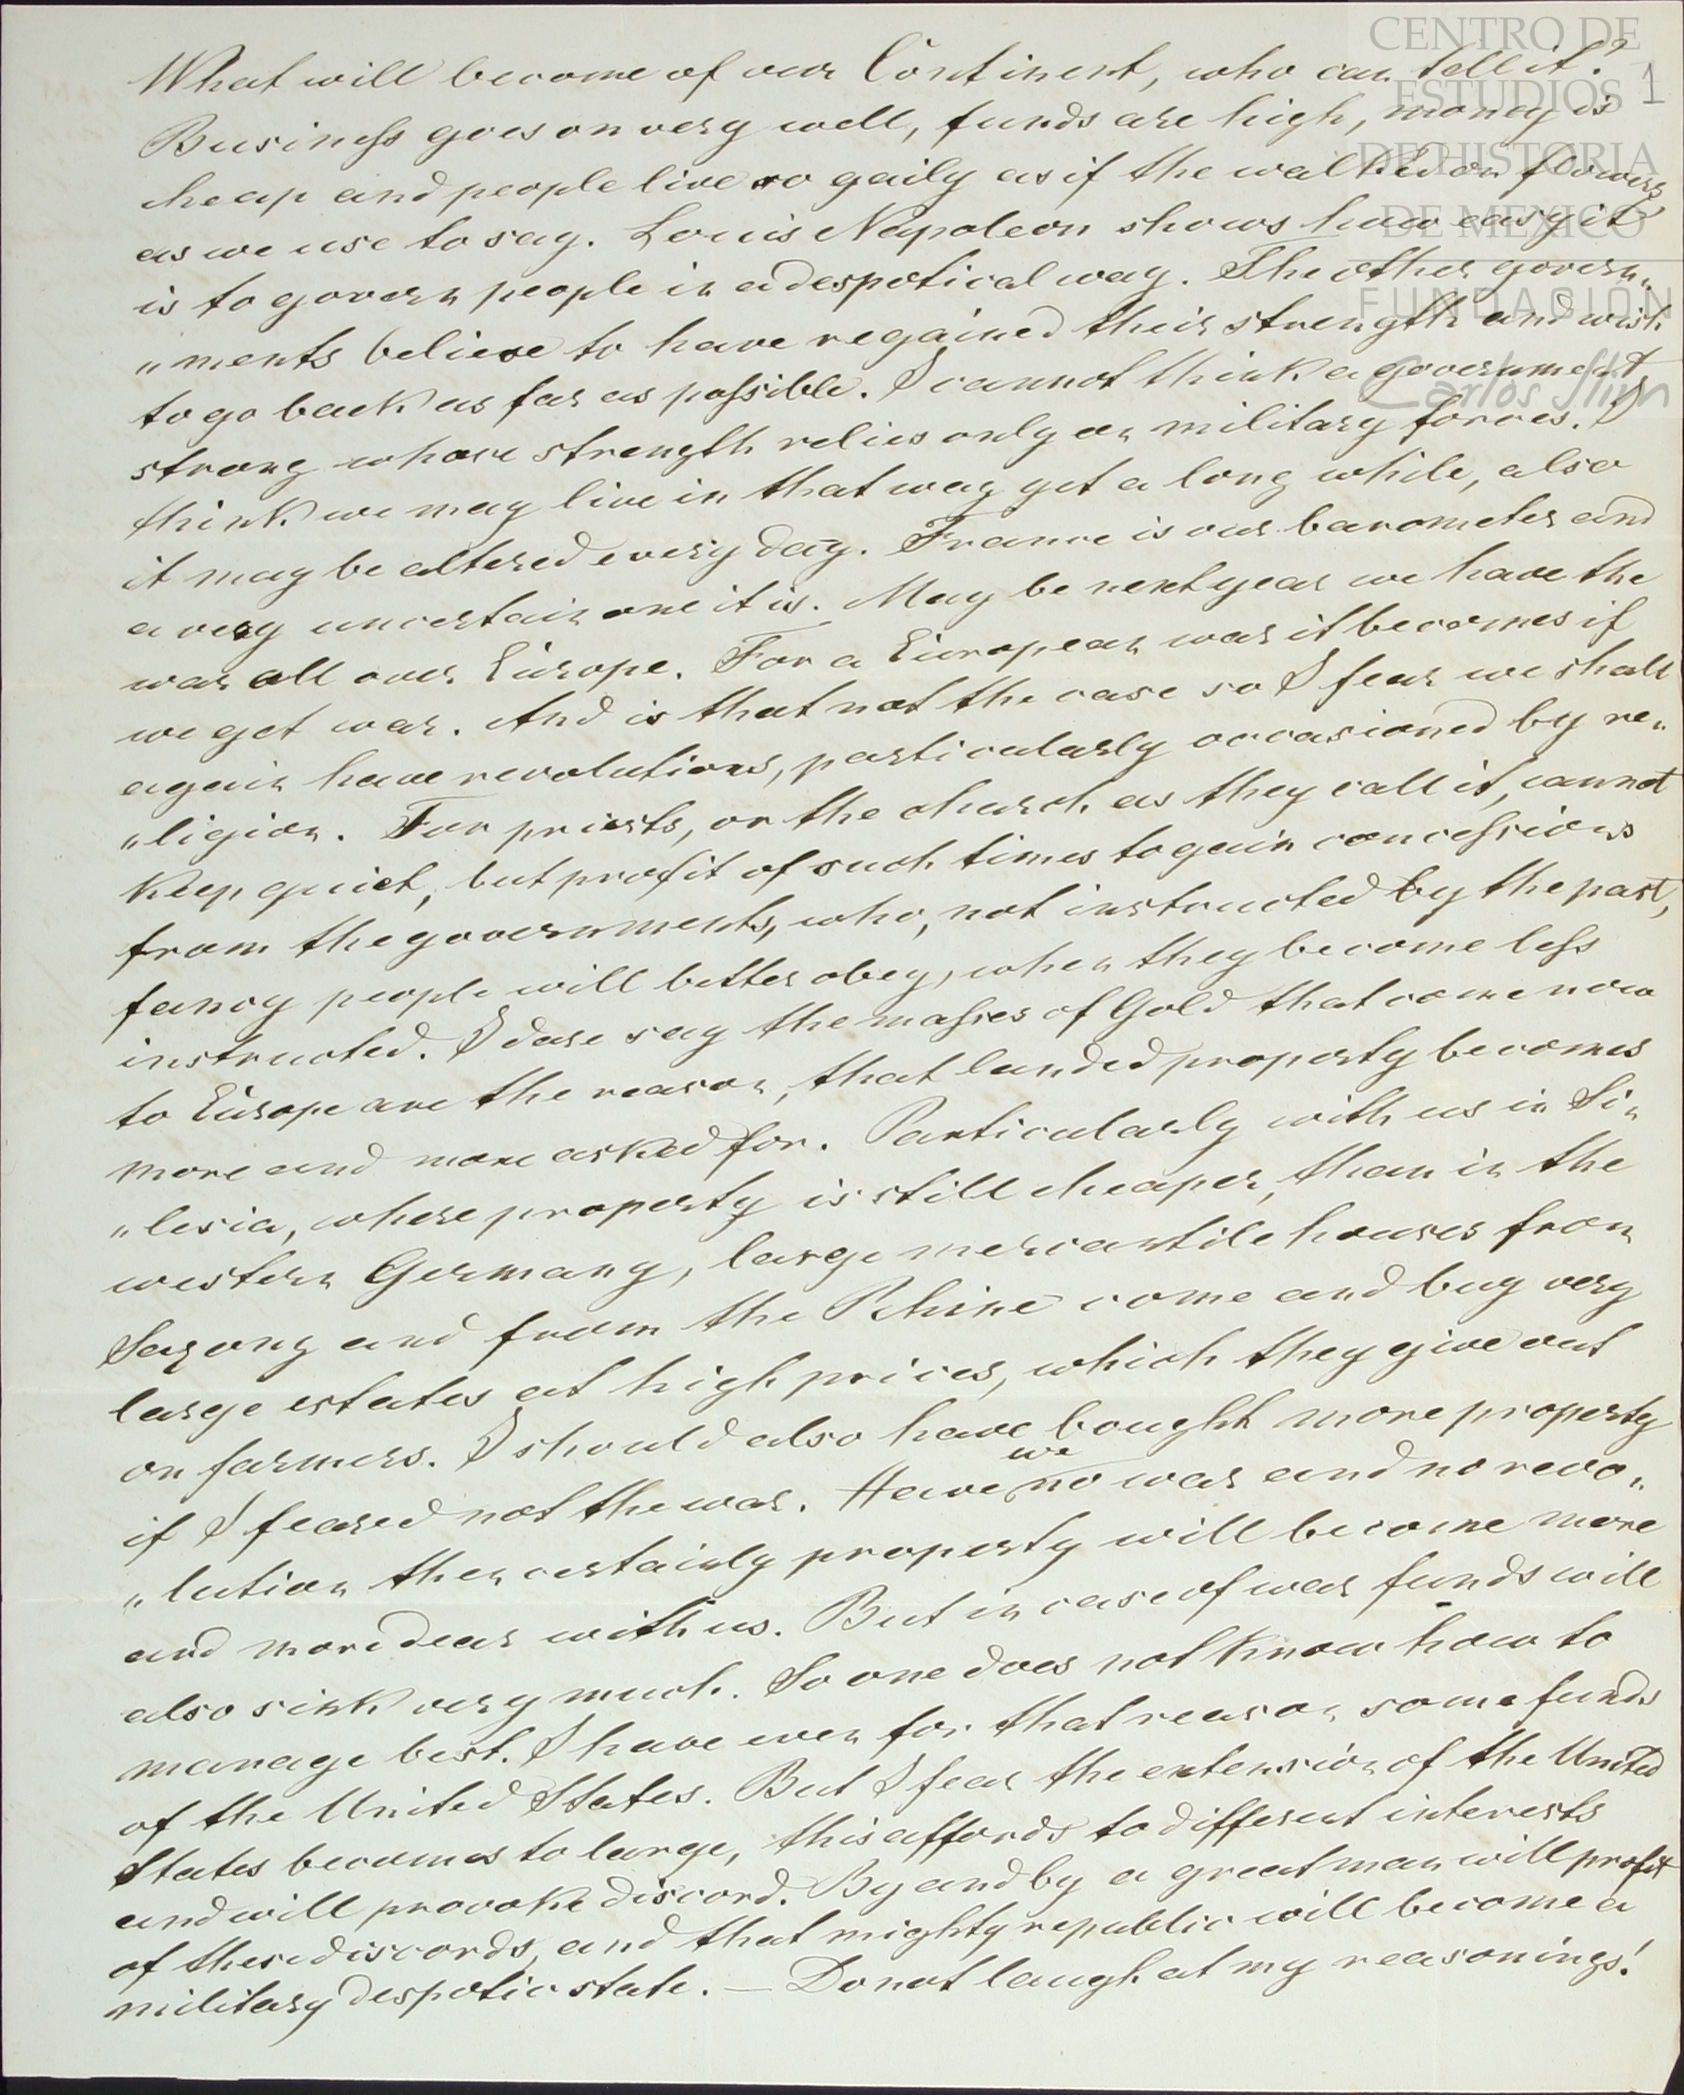 What will become of our Continent, who can tell it?
Business goes on very well, funds are high, money is
cheap and people live so gaily as if the walked on flowers
as we use to say. Louis Napoleon shows how easy it
is to govern people in a despotical way. The other govern„
„ments believe to have regained their strength and wish
to go back as far as possible. I cannot think a government
strong whose strength relies only on military forces. I
think we may live in that way yet a long while, also
it may be altered every day. France is our barometer and
a very uncertain one it is. May be next year we have the
war all over Europe. For a European war it becomes if
we get war. And is that not the case so I fear we shall
again have revolutions, particularly occasioned by re„
„ligion. For priests, or the church as they call it, cannot
keep quiet, but profit of such times to gain concessions
from the governments, who, not instructed by the past,
fancy people will better obey, when they become less
instructed. I dare say the masses of Gold that come now
to Europe are the reason, that landed property becomes
more and more asked for. Particularly with us in Si„
„lesia, where property is still cheaper, than in the
western Germany, large mercantile houses from
Saxony and from the Rhine come and buy very
large estates at high prices, which they give out
on farmers. I should also have bought more property
if I feared not the war. Have we no war and no revo„
„lution then certainly property will become more
and more dear with us. But in case of war funds will
also sink very much. So one does not know how to
manage best. I have even for that reason some funds
of the United States. But I fear the extension of the United
States becomes to large, this affords to different interests
and will provoke discord. By and by a great man will profit
of these discords, and that mighty republic will become a
military despotic state. — Do not laugh at my reasonings!
CENTRO DE
ESTUDIOS
DE HISTORIA
DE MEXICO
FUNDACIÓN
Carlos Slim
1